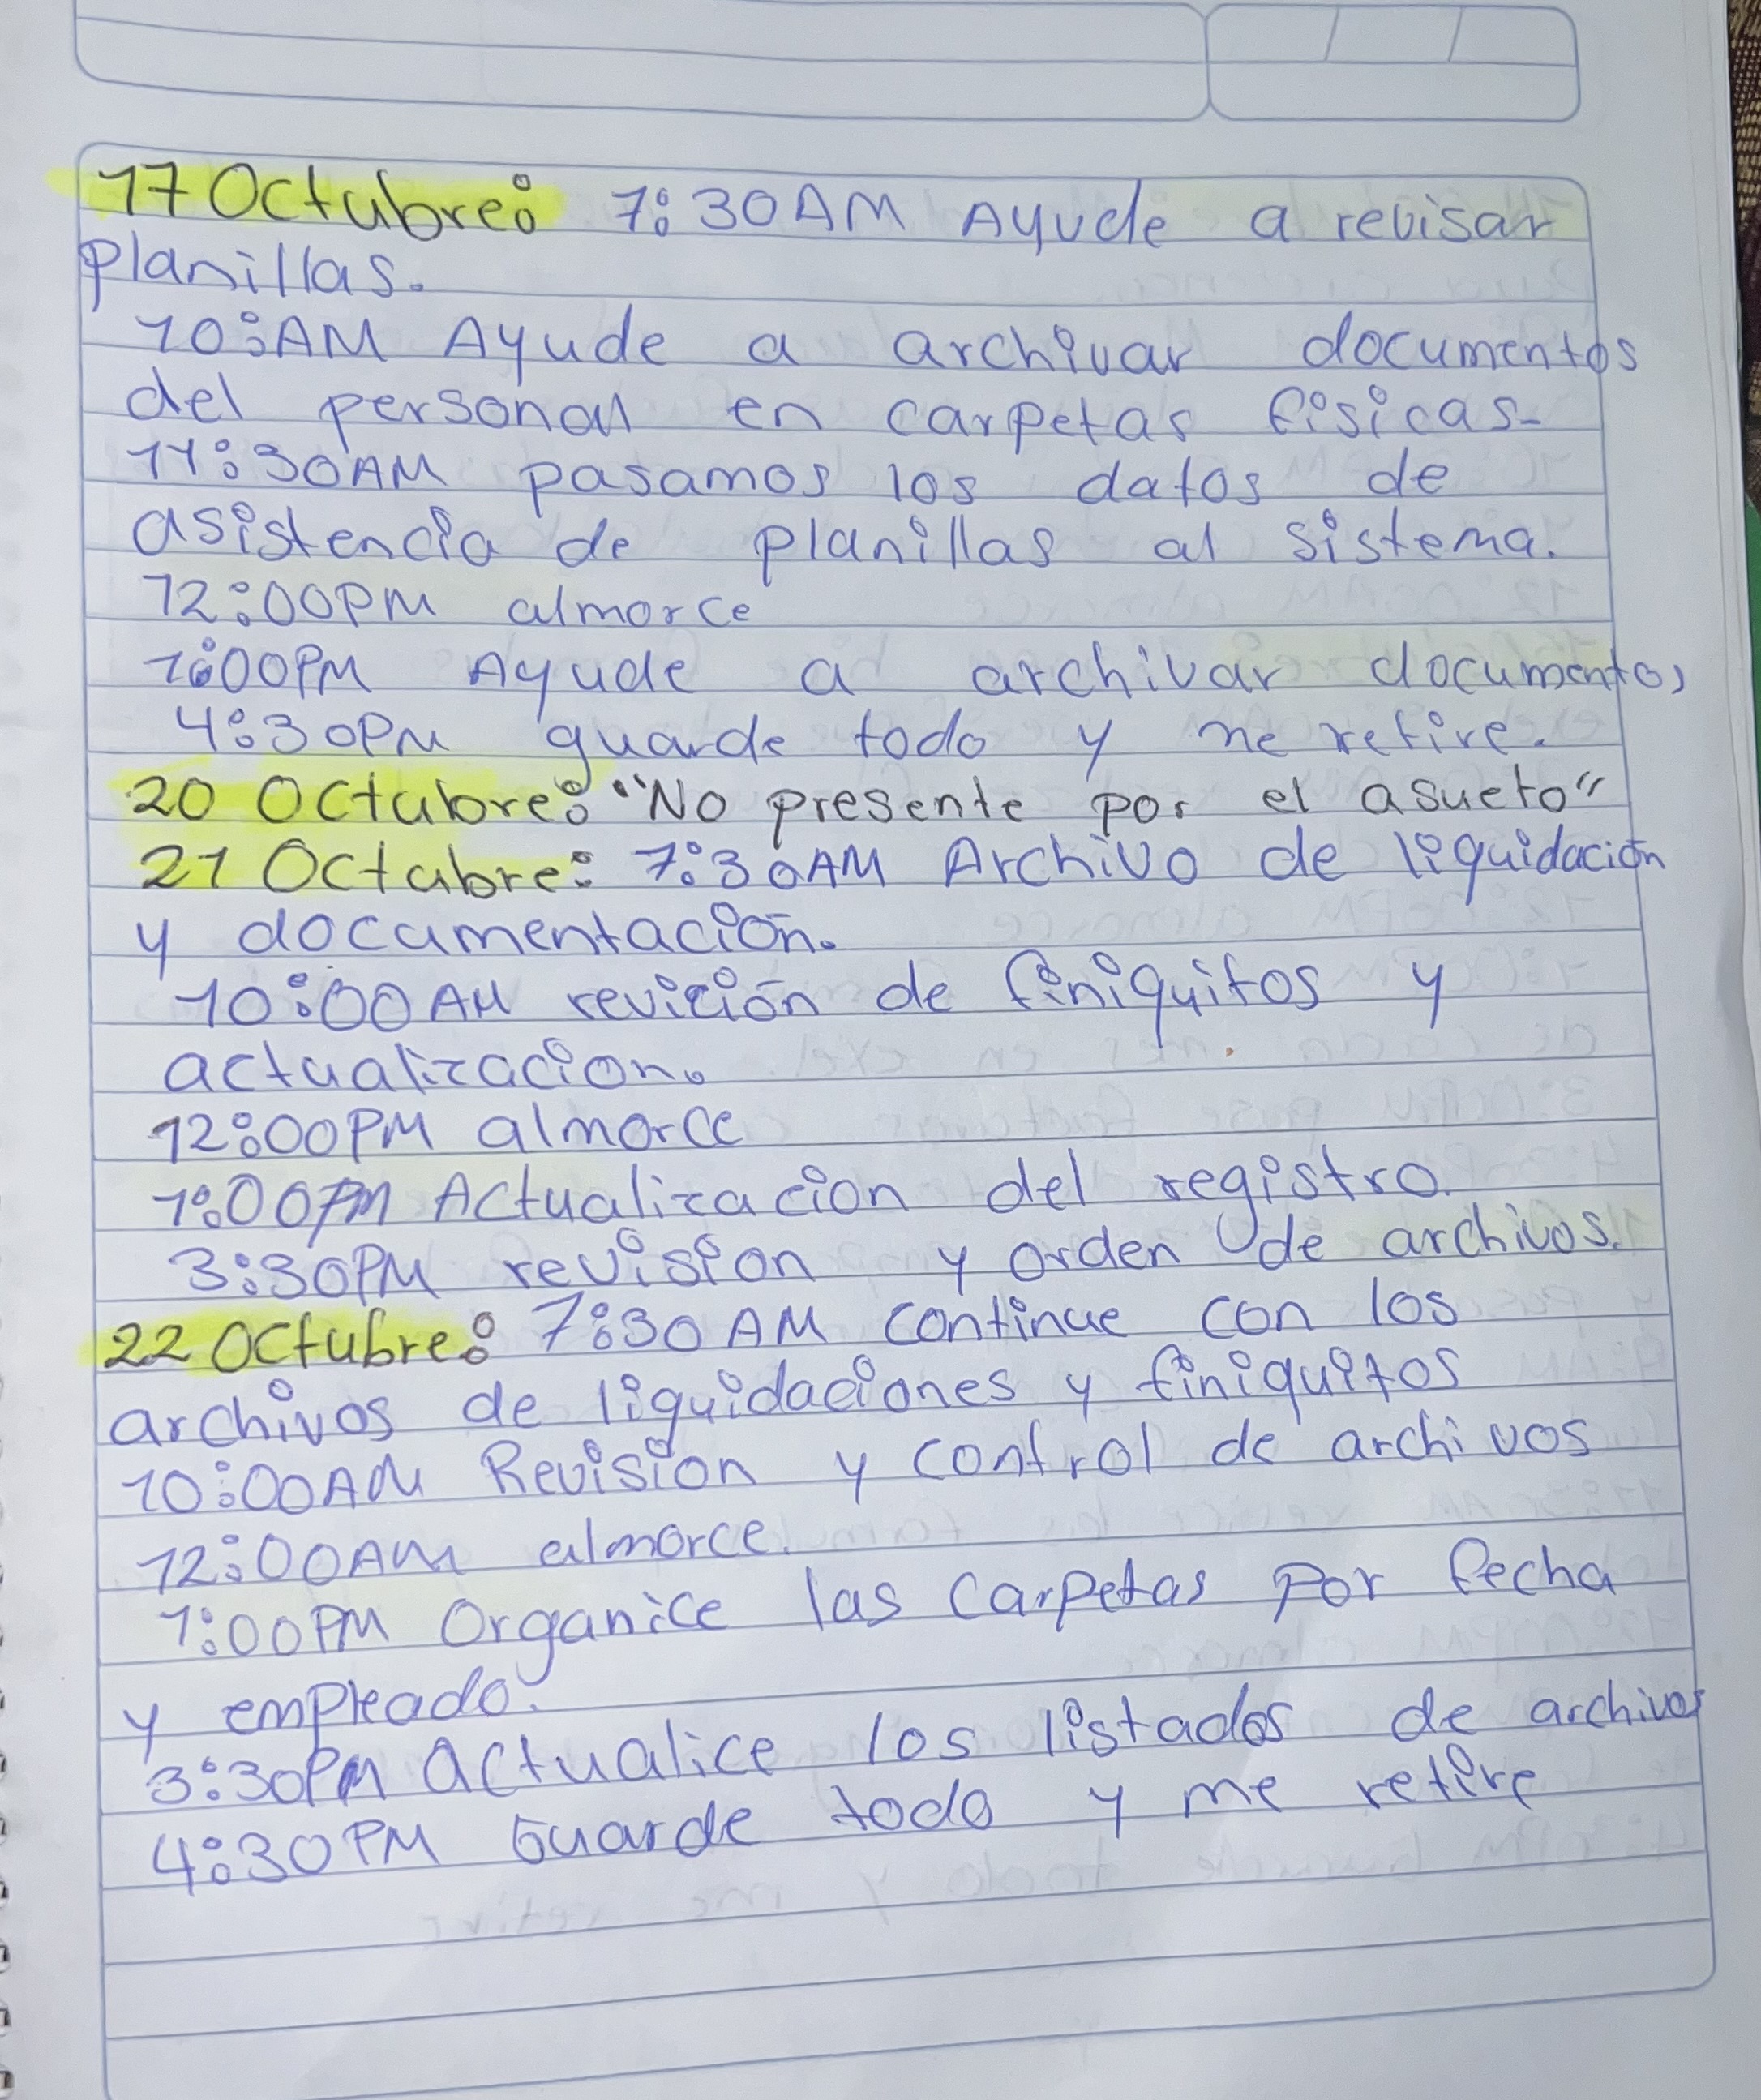 17 Octubre: 7:30AM Ayude a revisar
planillas.
10:AM Ayude a archivar documentos
del personal en carpetas físicas-
11:30AM pasamos los datos de
asistencia de planillas al sistema.
12:00PM almorce
1:00PM Ayude a archivar documentos
4:30PM guarde todo y me retire.
20 Octubre: "No presente por el asueto"
21 Octubre: 7:30AM Archivo de liquidación
y documentación.
10:00AM revición de finiquitos y
actualizacion.
12:00PM almorce
1:00PM Actualizacion del registro.
3:30PM revision y orden de archivos.
22 Octubre: 7:30AM continue con los
archivos de liquidaciones y finiquitos
10:00AM Revision y control de archivos
12:00AM almorce.
1:00PM Organice las carpetas por fecha
y empleado.
3:30PM Actualice los listados de archivos
4:30PM Guarde todo y me retire